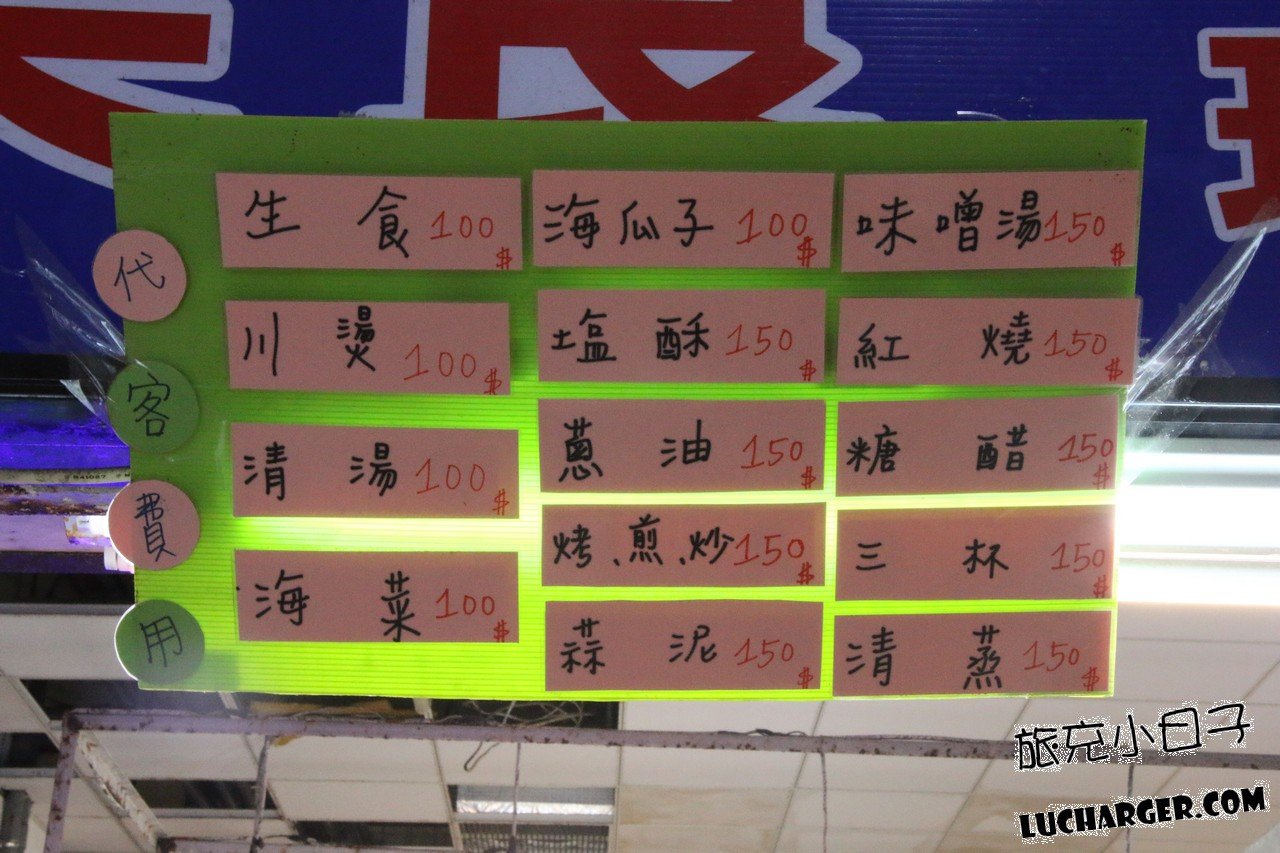 代
客
費
用
生食 100 $
川燙 100 $
清湯 100 $
海菜 100 $
海瓜子 100 $
塩酥 150 $
蔥油 150 $
烤、煎、炒 150 $
蒜泥 150 $
味噌湯 150 $
紅燒 150 $
糖醋 150 $
三杯 150 $
清蒸 150 $
旅充小日子
LUCHARGER.COM